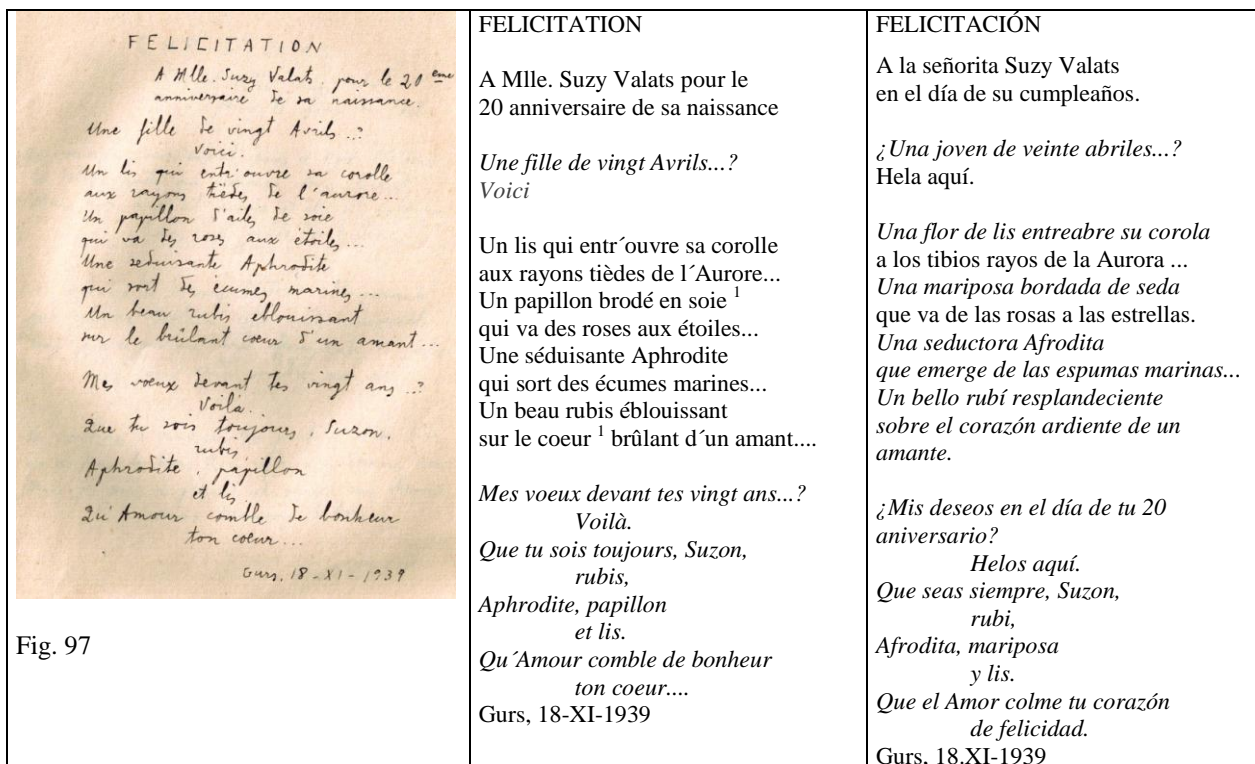 FELICITATION
A Mlle. Suzy Valats. pour le 20 eme
anniversaire de sa naissance.
Une fille de vingt Avrils...?
Voici.
Un lis qui entr'ouvre sa corolle
aux rayons tiëdes de l'aurore...
Un papillon d'ailes de soie
qui va des roses aux étoiles...
Une seduisante Aphrodite
qui sort des écumes marines...
Un beau rubis eblouissant
sur le brûlant coeur d'un amant...
Mes voeux devant tes vingt ans...?
Voilà.
Que tu sois toujours, Suzon,
rubis,
Aphrodite, papillon
et lis
Qu'Amour comble de bonheur
ton coeur...
Gurs, 18-XI-1939
Fig. 97
FELICITATION
A Mlle. Suzy Valats pour le
20 anniversaire de sa naissance
Une fille de vingt Avrils...?
Voici
Un lis qui entr´ouvre sa corolle
aux rayons tièdes de l´Aurore...
Un papillon brodé en soie 1
qui va des roses aux étoiles...
Une séduisante Aphrodite
qui sort des écumes marines...
Un beau rubis éblouissant
sur le coeur 1 brûlant d´un amant....
Mes voeux devant tes vingt ans...?
Voilà.
Que tu sois toujours, Suzon,
rubis,
Aphrodite, papillon
et lis.
Qu´Amour comble de bonheur
ton coeur....
Gurs, 18-XI-1939
FELICITACIÓN
A la señorita Suzy Valats
en el día de su cumpleaños.
¿Una joven de veinte abriles...?
Hela aquí.
Una flor de lis entreabre su corola
a los tibios rayos de la Aurora ...
Una mariposa bordada de seda
que va de las rosas a las estrellas.
Una seductora Afrodita
que emerge de las espumas marinas...
Un bello rubí resplandeciente
sobre el corazón ardiente de un
amante.
¿Mis deseos en el día de tu 20
aniversario?
Helos aquí.
Que seas siempre, Suzon,
rubi,
Afrodita, mariposa
y lis.
Que el Amor colme tu corazón
de felicidad.
Gurs, 18.XI-1939